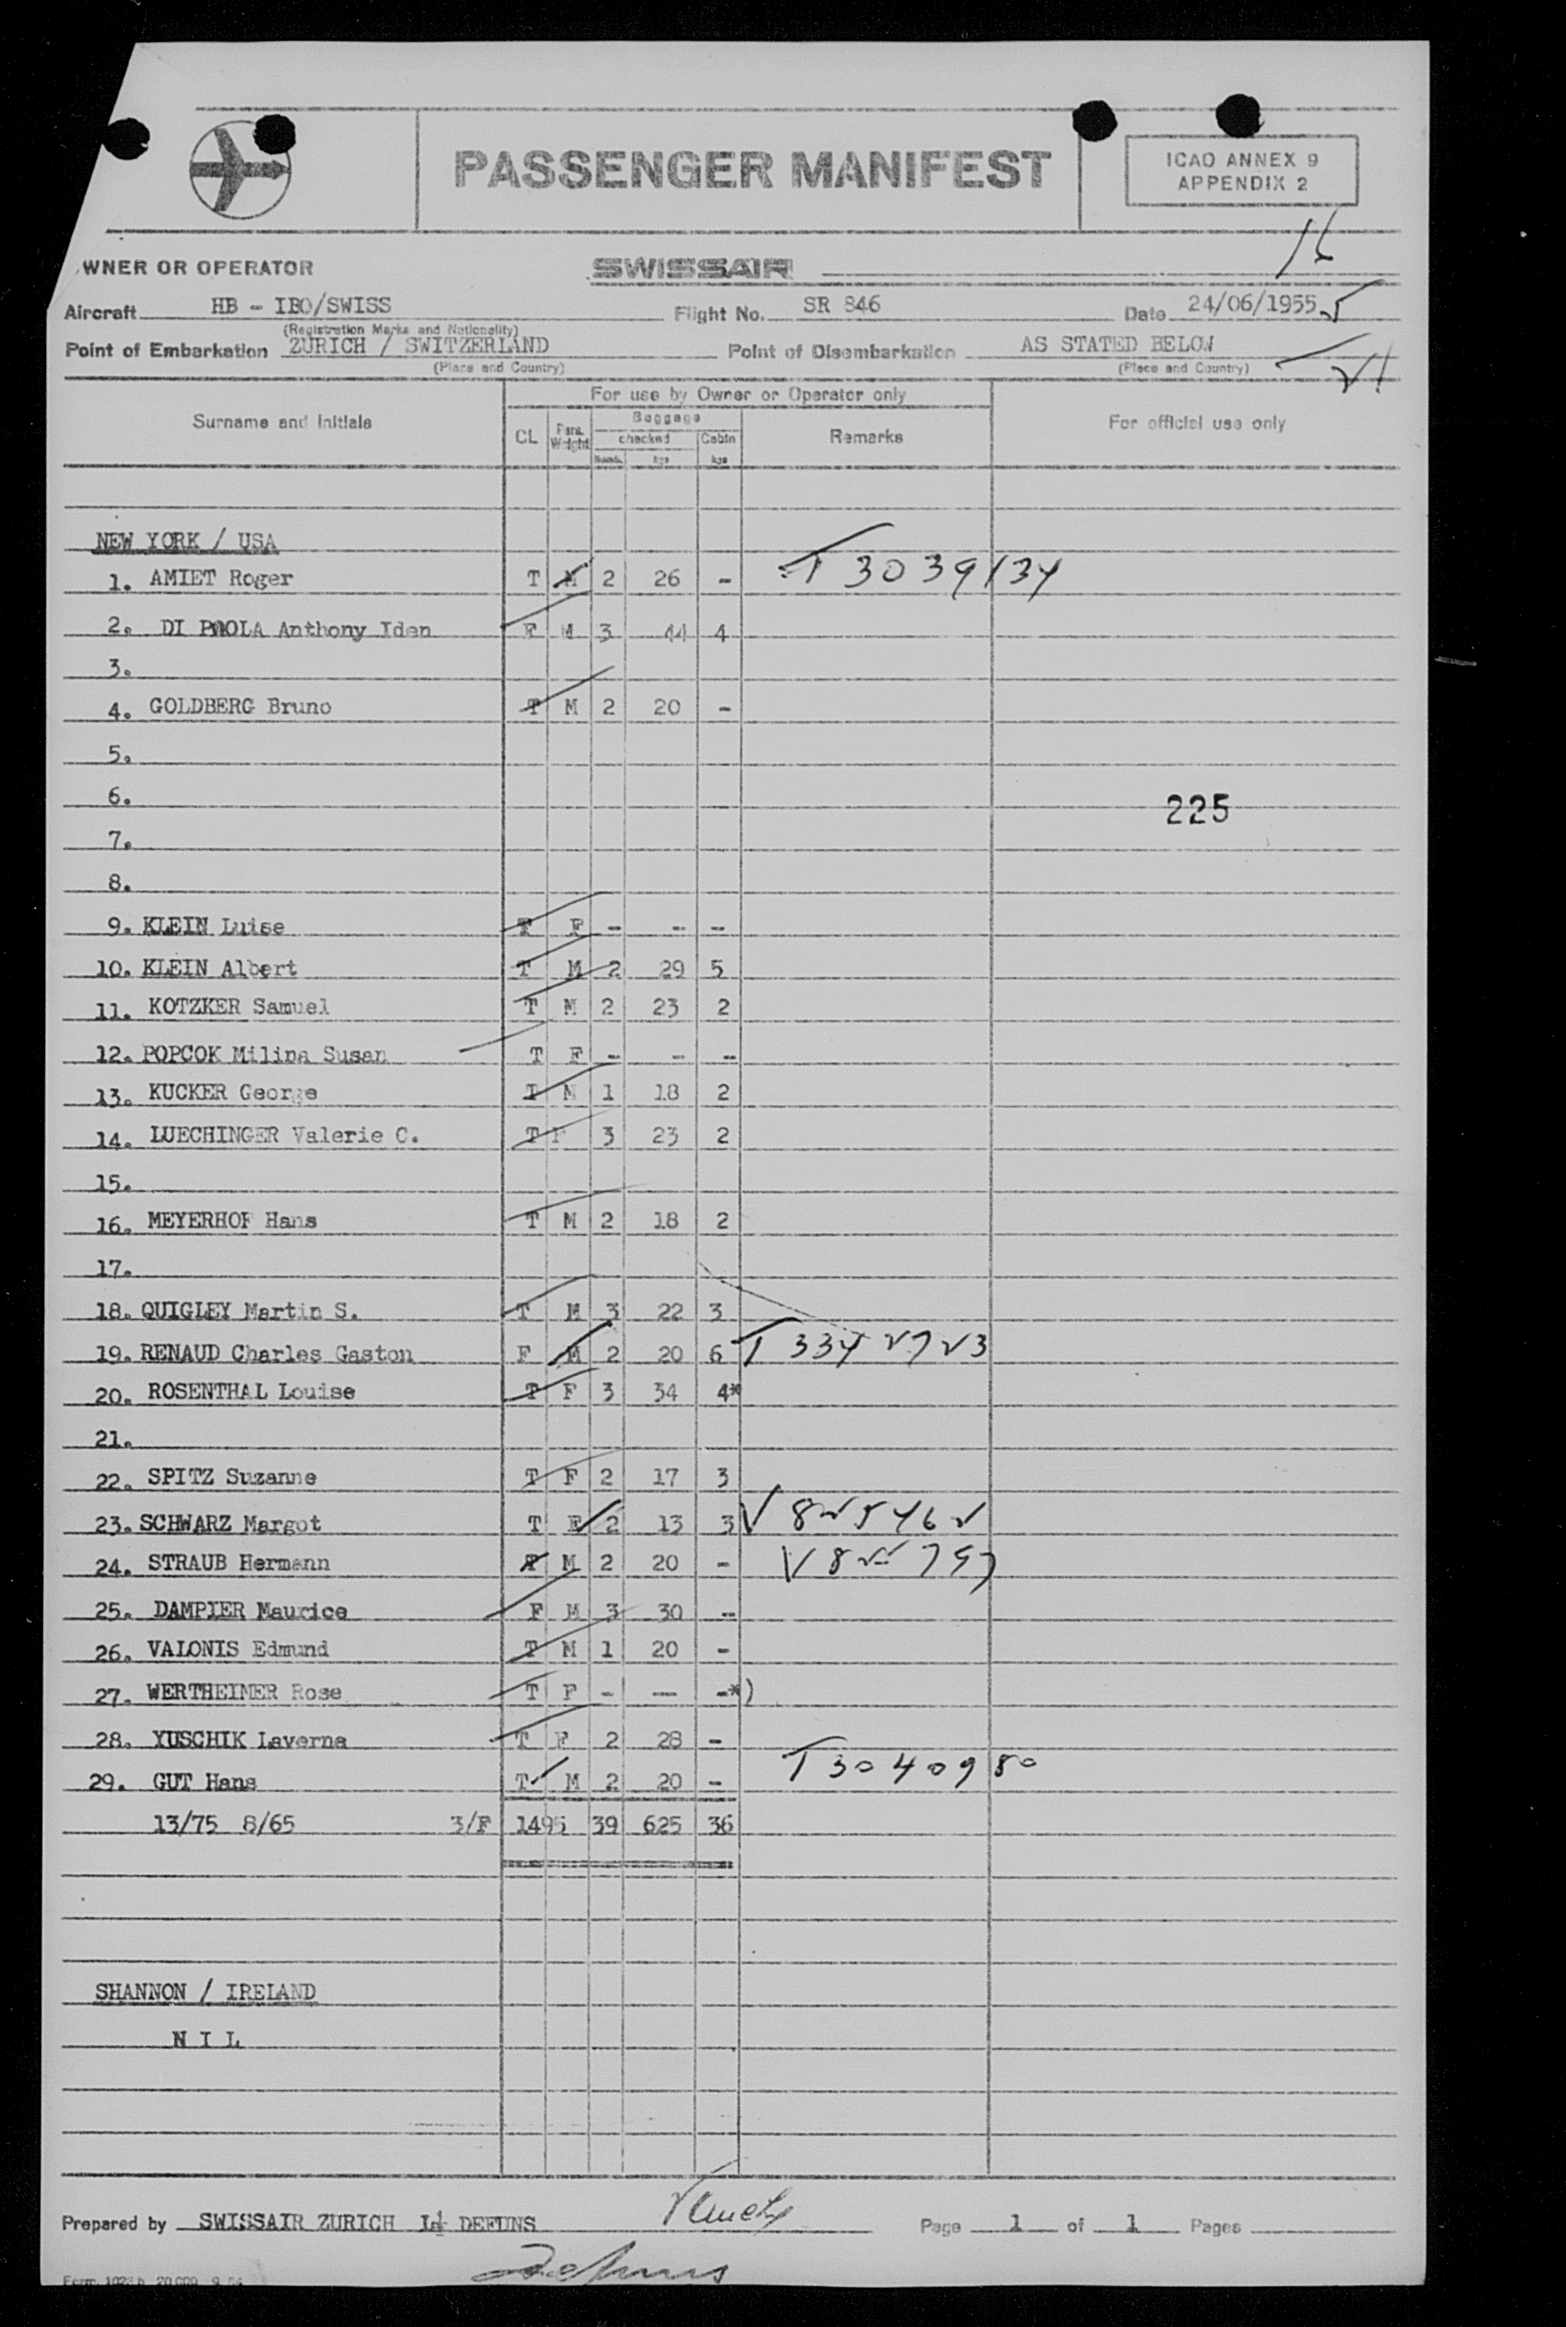 PASSENGER MANIFEST
ICAO ANNEX 9
APPENDIX 2
16
WNER OR OPERATOR SWISSAIR
Aircraft HB - IBO/SWISS Flight No. SR 846 Date 24/06/1955
(Registration Marks and Nationality)
Point of Embarkation ZURICH / SWITZERLAND Point of Disembarkation AS STATED BELOW
(Place and Country) (Place and Country)
21
For use by Owner or Operator only
Surname and initials CL Pass. Weight Baggage checked Cabin Remarks For official use only
Numb. kgs kgs
NEW YORK / USA
1. AMIET Roger T M 2 26 - T 3039134
2. DI PAOLA Anthony Iden F M 3 44 4
3.
4. GOLDBERG Bruno T M 2 20 -
5.
6.
225
7.
8.
9. KLEIN Luise T F - - -
10. KLEIN Albert T M 2 29 5
11. KOTZKER Samuel T M 2 23 2
12. POPCOK Milina Susan T F - - -
13. KUCKER George T M 1 18 2
14. LUECHINGER Valerie C. T F 3 23 2
15.
16. MEYERHOF Hans T M 2 18 2
17.
18. QUIGLEY Martin S. T M 3 22 3
19. RENAUD Charles Gaston F M 2 20 6 T 3342723
20. ROSENTHAL Louise T F 3 34 4*
21.
22. SPITZ Suzanne T F 2 17 3
23. SCHWARZ Margot T F 2 13 3 V 825462
24. STRAUB Hermann T M 2 20 -
25. DAMPIER Maurice F M 3 30 --
26. VALONIS Edmund T M 1 20 -
27. WERTHEIMER Rose T F - -- -*)
28. YUSCHIK Laverna T F 2 28 -
29. GUT Hans T M 2 20 - T 3040980
13/75 8/65 3/F 1495 39 625 36
SHANNON / IRELAND
N I L
Prepared by SWISSAIR ZURICH DEFUNS Page 1 of 1 Pages